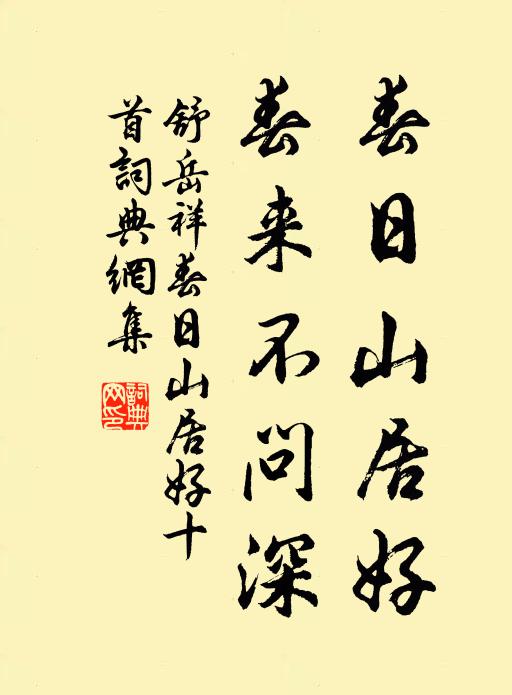 春日山居好
春来不问深
舒岳祥春日山居好十
首詞典網集
詞典
网印